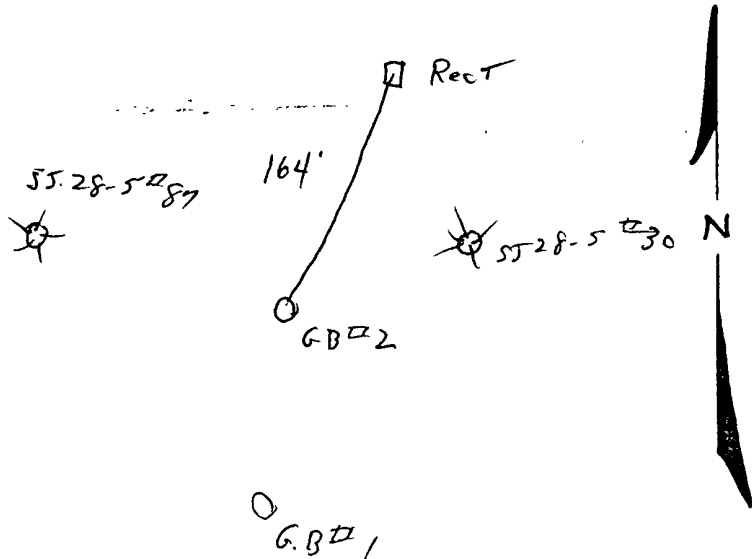 RecT
164'
SJ. 28-5 #87
SJ 28-5 #30
N
GB #2
G.B #1